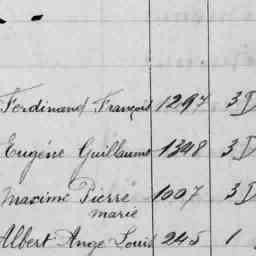 Ferdinand François 1297 3 D
Eugéne Guillaume 1348 3 D
Maxime Pierre 1007 3 D
marie
Albert Ange Louis 245 1